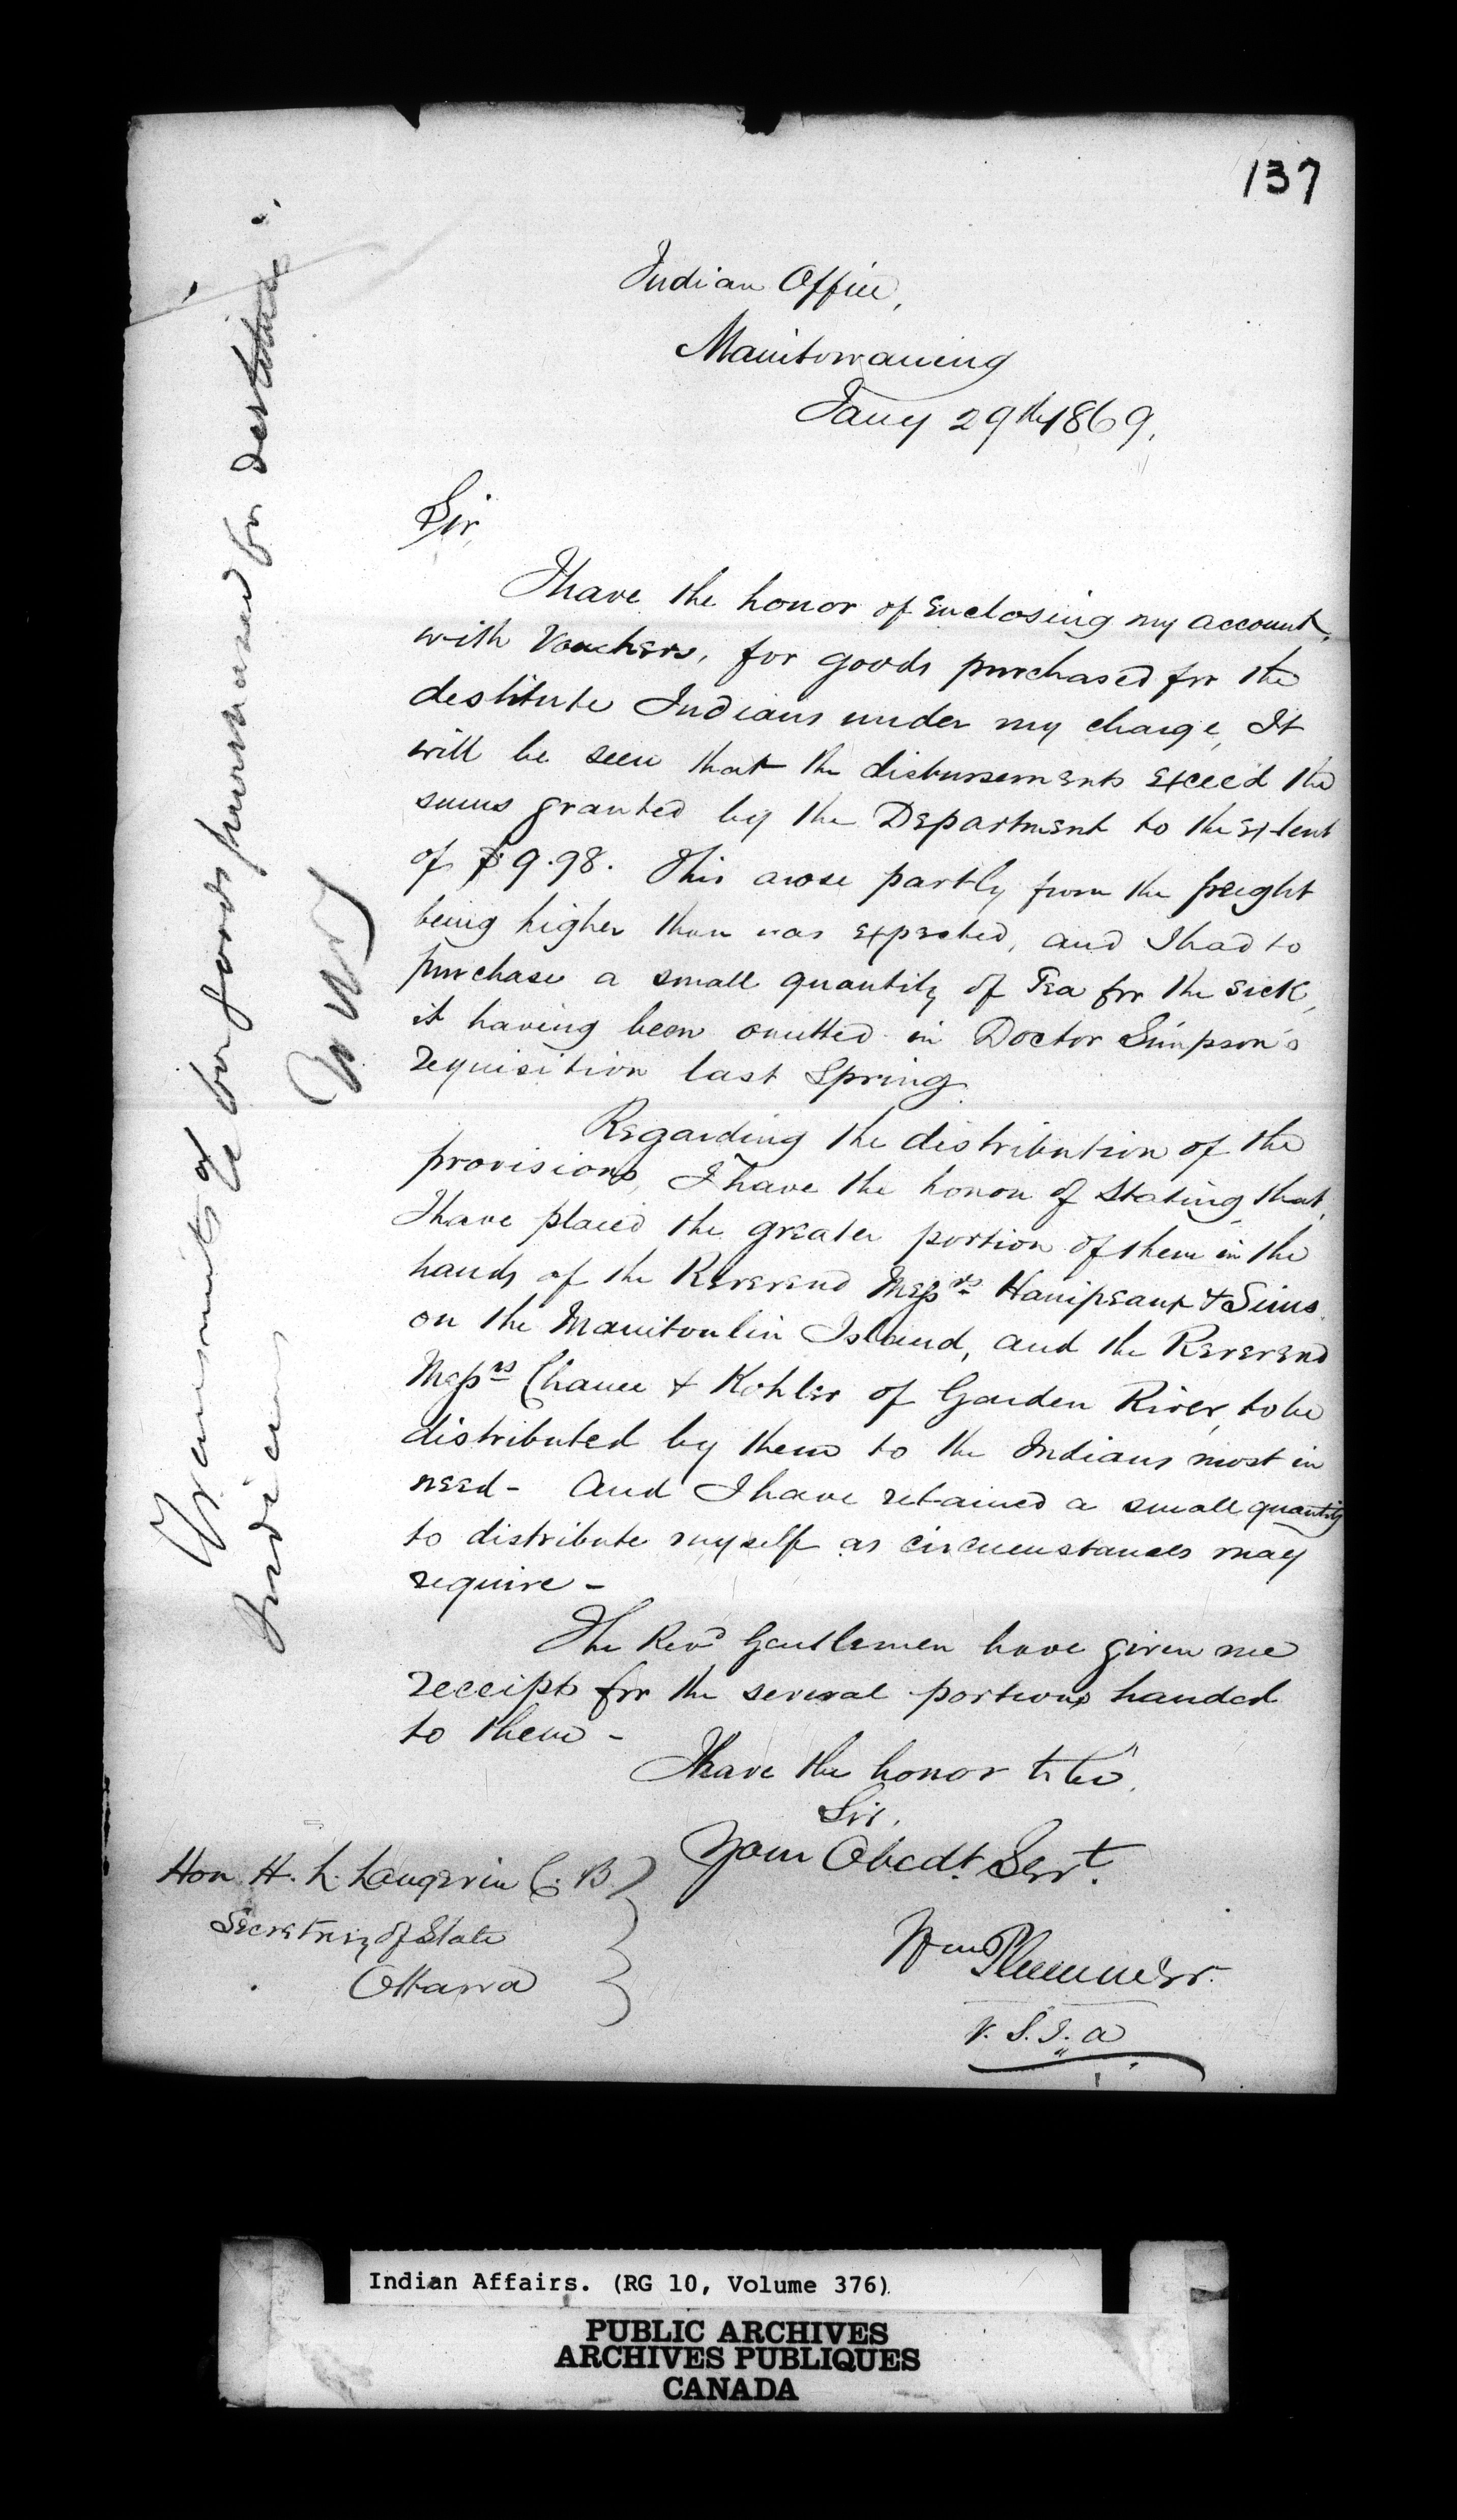 137
Indian Office,
Manitowaning
Jany 29th 1869.
Sir,
I have the honor of Enclosing my account,
with Vouchers, for goods purchased for the
destitute Indians under my charge, It
will be seen that the disbursements Exceed the
sums granted by the Department to the Extent
of $9.98. This arose partly from the freight
being higher than was Expected, and I had to
purchase a small quantity of Tea for the sick,
it having been omitted in Doctor Simpson's
requisition last Spring.
Regarding the distribution of the
provisions, I have the honor of stating, that,
I have placed the greater portion of them in the
hands of the Reverend Messrs Hanipeaux & Sims
on the Manitoulin Island, and the Reverend
Messrs Chance & Kohler of Garden River, to be
distributed by them to the Indians most in
need - And I have retained a small quantity
to distribute myself as circumstances may
require -
The Revd Gentlemen have given me
receipts for the several portions handed
to them -
I have the honor to be,
Sir,
Your Obedt. Servt.
Wm Plummer
V. S. I. A
Hon H. L. Langevin C. B.
Secretary of State
Ottawa
of
for goods purchased for destitute
Indians
Indian Affairs. (RG 10, Volume 376)
PUBLIC ARCHIVES
ARCHIVES PUBLIQUES
CANADA